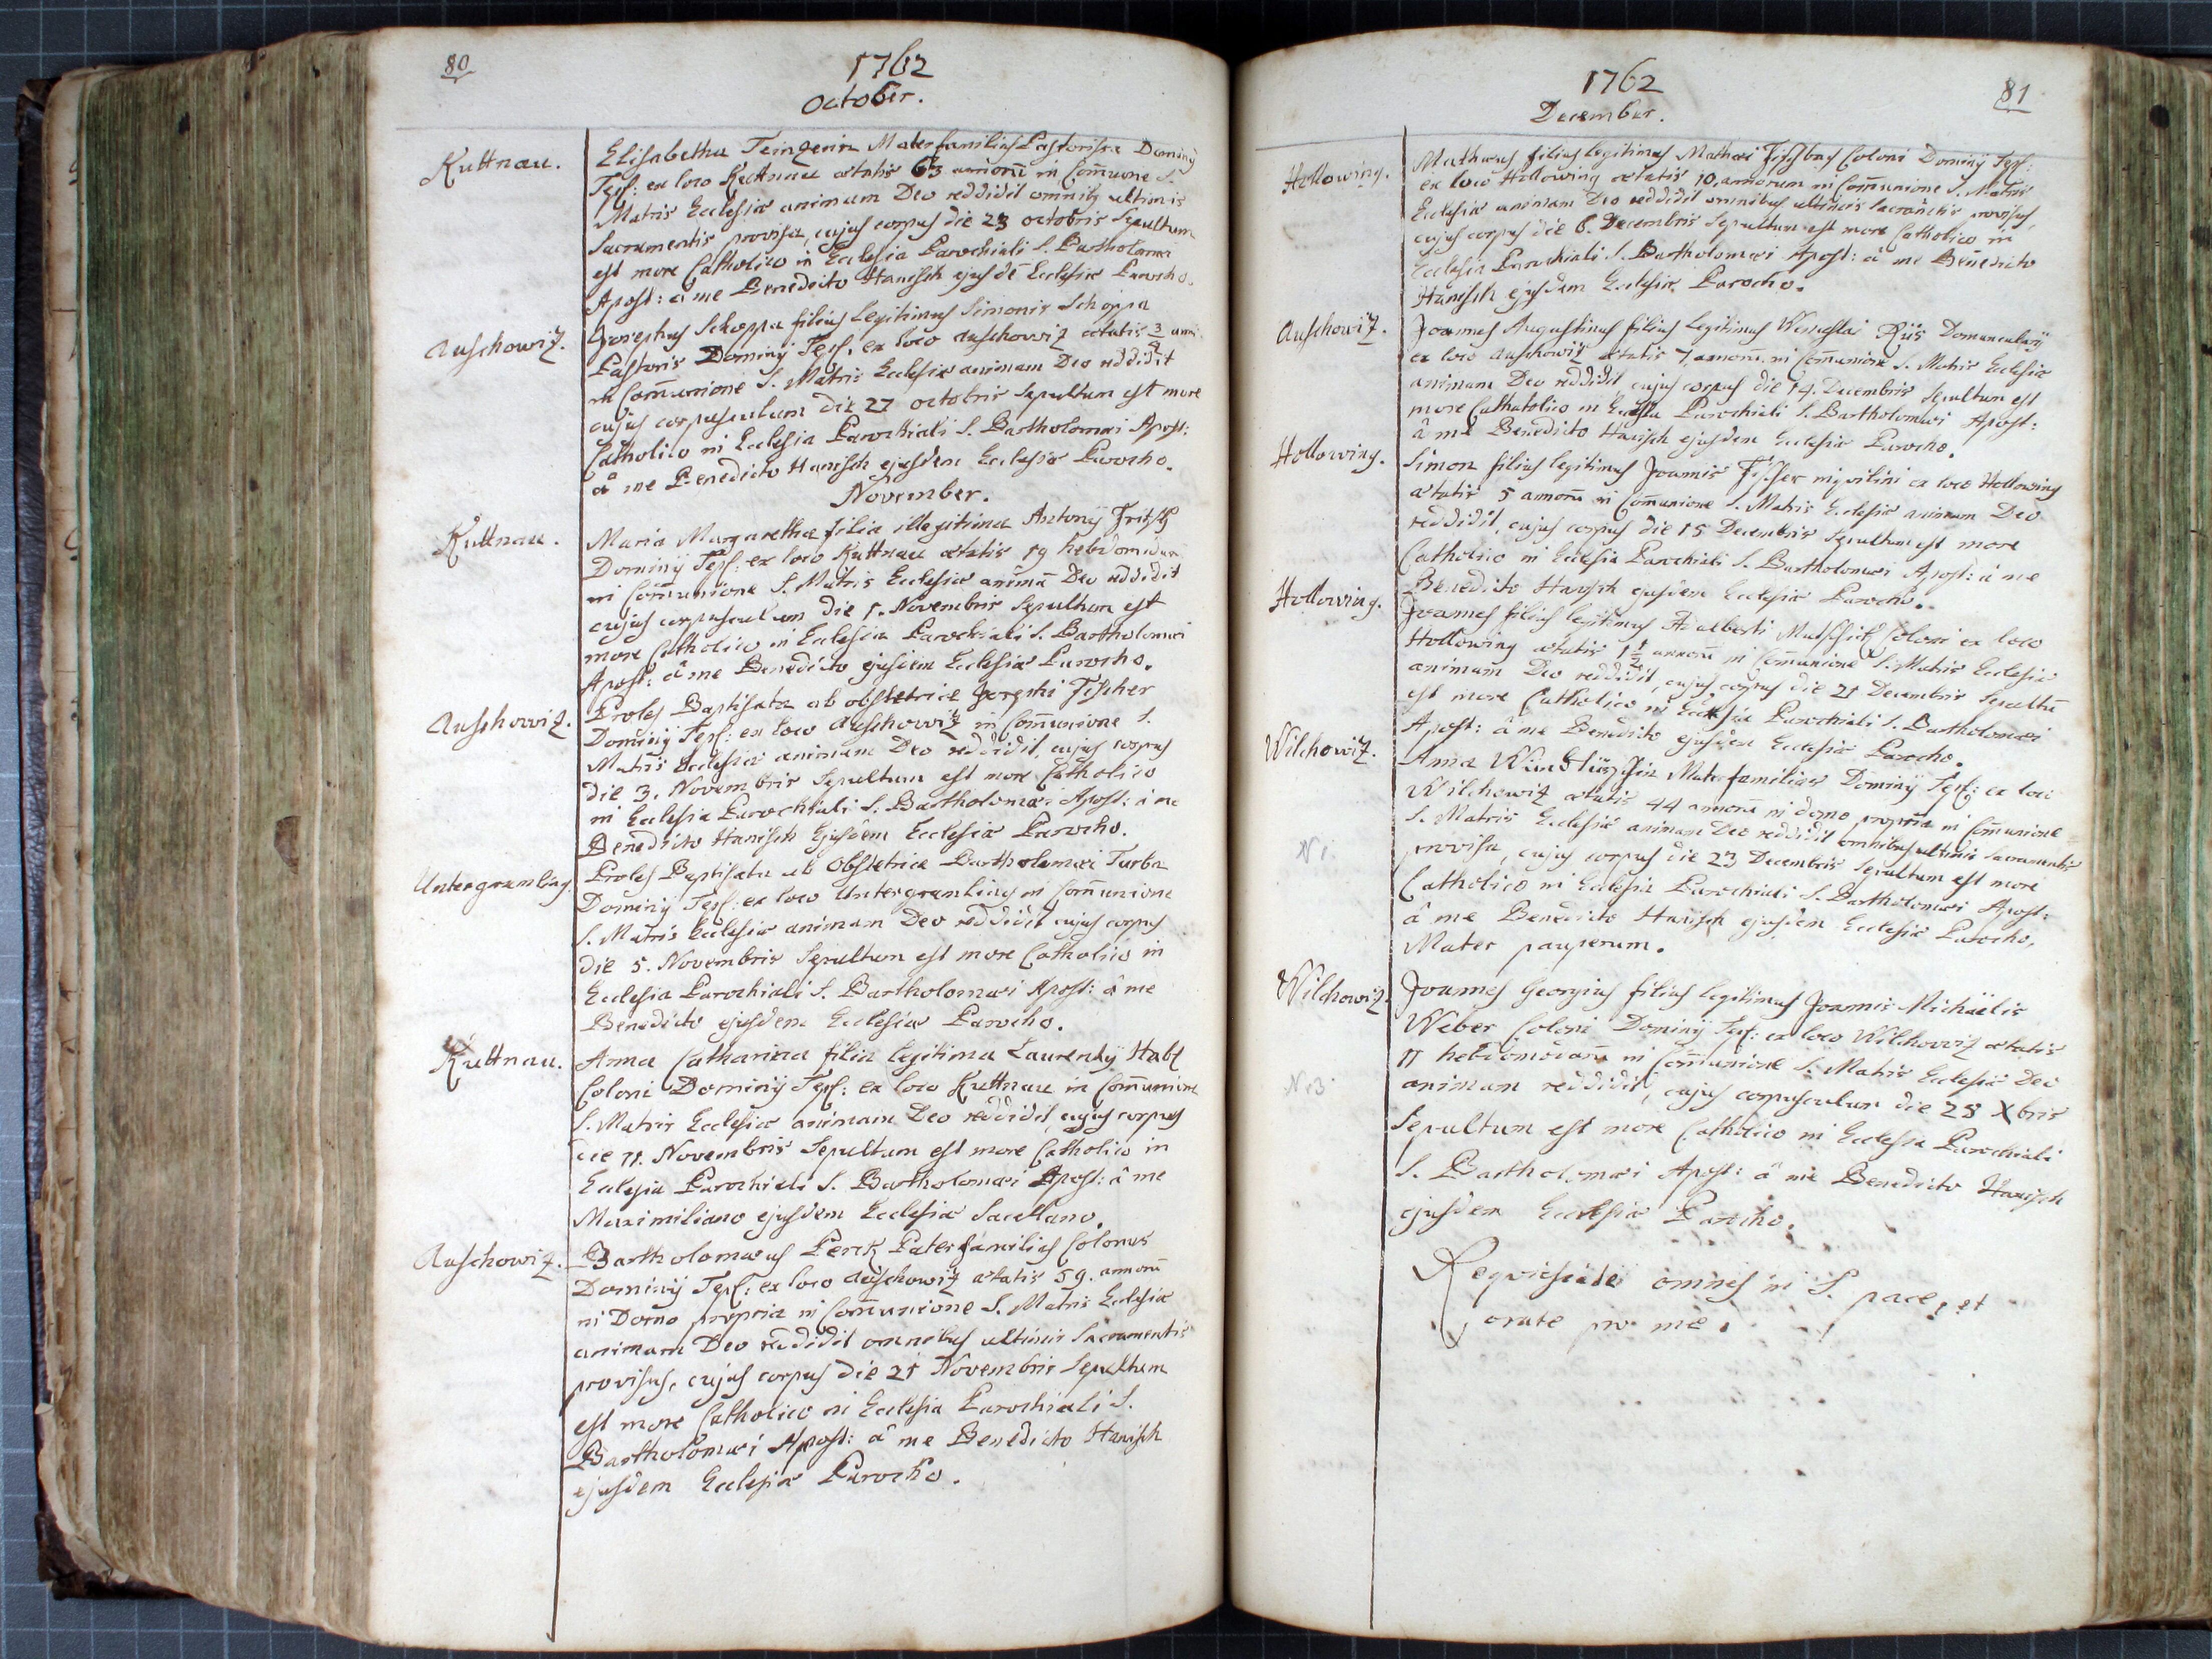 80
1762
October.
Kuttnau.
Elisabetha Teinzerin Materfamilias Pastorissa Dominÿ
Tepl: ex loco Kuttnau ætatis 63 annorũ in Com̃une S.
Matris Ecclesiæ animam Deo reddidit omnibꝫ ultimis
Sacramentis provisa, cujus corpus die 23 octobris Sepultum
est more Catholico in Ecclesia Parochiali S. Bartholomæi
Apost: â me Benedicto Hanisch ejusdẽ Ecclesiæ Parocho.
Auschowiz.
Josephus Schoppa filius legitimus Simonis Schoppa
Pastoris Dominÿ Tepl. ex loco Auschowiz ætatis 3/4 anni
in Com̃unione S. Matris Ecclesiæ animam Deo reddidit
cujus corpusculum die 27 octobris Sepultum est more
Catholico in Ecclesia Parochiali S. Bartholomæi Apost:
â me Benedicto Hanisch ejusdem Ecclesiæ Parocho.
November.
Kuttnau.
Maria Margaretha filia illegitima Antonÿ Fritsch
Dominÿ Tepl: ex loco Kuttnau ætatis 19 hebdomadar
in Com̃unione S. Matris Ecclesiæ animã Deo reddidit
cujus corpusculum die 1. Novembris Sepultum est
more Catholico in Ecclesia Parochiali S. Bartholomæi
Apost: â me Benedicto ejusdem Ecclesiæ Parocho.
Auschowiz.
Proles Baptisata ab obstetrice Josephi Fischer
Dominÿ Tepl: ex loco Auschowiz in Com̃unione S.
Matris Ecclesiæ animam Deo reddidit, cujus corpus
die 3. Novembris Sepultum est more Catholico
in Ecclesia Parochiali S. Bartholomæi Apost: â me
Benedicto Hanisch Ejusdem Ecclesiæ Parocho.
Untergramling.
Proles Baptisata ab Obstetrice Bartholomæi Turba
Dominÿ Tepl: ex loco Untergramling in Com̃unione
S. Matris Ecclesiæ animam Deo reddidit cujus corpus
die 5. Novembris Sepultum est more Catholico in
Ecclesia Parochiali S. Bartholomæi Apost: â me
Benedicto ejusdem Ecclesiæ Parocho.
Kuttnau.
Anna Catharina filia legitima Laurentÿ Habl
Coloni Dominÿ Tepl: ex loco Kuttnau in Com̃unione
S. Matris Ecclesiæ animam Deo reddidit cujus corpus
die 11. Novembris Sepultum est more Catholico in
Ecclesia Parochiali S. Bartholomæi Apost: â me
Maximiliano ejusdem Ecclesiæ Sacellano.
Auschowiz.
Bartholomæus Perck Paterfamilias Colonus
Dominÿ Tepl: ex loco Auschowiz ætatis 59. annorũ
in Domo propria in Com̃unione S. Matris Ecclesiæ
animam Deo reddidit omnibus ultimis Sacramentis
provisus, cujus corpus die 21 Novembris Sepultum
est more Catholico in Ecclesia Parochiali S.
Bartholomæi Apost: â me Benedicto Hanisch
ejusdem Ecclesiæ Parocho.
1762
81
December.
Hollowing.
Mathæus filius legitimus Mathæi Fischbach Coloni Dominÿ Tepl:
ex loco Hollowing ætatis 10. annorum in Com̃unione S. Matris
Ecclesiæ animam Deo reddidit omnibus ultimis Sacramentis provisus,
cujus corpus die 6. Decembris Sepultum est more Catholico in
Ecclesia Parochiali S. Bartholomæi Apost: â me Benedicto
Hanisch ejusdem Ecclesiæ Parocho.
Auschowiz.
Joannes Augustinus filius legitimus Wenceslai Domuncularÿ
ex loco Auschowiz ætatis 7. annorũ in Com̃unione S. Matris Ecclesiæ
animam Deo reddidit cujus corpus die 14. Decembris Sepultum est
more Cathatolico in Ecclesia Parochiali S. Bartholomæi Apost:
â me Benedicto Hanisch ejusdem Ecclesiæ Parocho.
Hollowing.
Simon filius legitimus Joannis Fischer inquilini ex loco Hollowing
ætatis 5 annorũ in Com̃unione S. Matris Ecclesiæ animam Deo
reddidit, cujus corpus die 15 Decembris Sepultum est more
Catholico in Ecclesia Parochiali S. Bartholomæi Apost: â me
Benedicto Hanisch ejusdem Ecclesiæ Parocho.
Hollowing.
Joannes filius legitimus Adalberti Coloni ex loco
Hollowing ætatis 1 1/2 annorũ in Com̃unione S. Matris Ecclesiæ
animam Deo reddidit, cujus corpus die 21 Decembris Sepultũ
est more Catholico in Ecclesia Parochiali S. Bartholomæi
Apost: â me Benedicto ejusdem Ecclesiæ Parocho.
Wilchowiz.
Anna Materfamilias Dominÿ Tepl: ex loco
Wilchowiz ætatis 44 annorũ in domo propria in Com̃unione
S. Matris Ecclesiæ animam Deo reddidit omnibus ultimis Sacramentis
N 1.
provisa, cujus corpus die 23 Decembris Sepultum est more
Catholico in Ecclesia Parochiali S. Bartholomæi Apost:
â me Benedicto Hanisch ejusdem Ecclesiæ Parocho.
Mater pauperum.
Wilchowiz.
Joannes Georgius filius legitimus Joannis Michaëlis
Weber Coloni Dominÿ Tepl: ex loco Wilchowiz ætatis
11 hebdomadarũ in Com̃unione S. Matris Ecclesiæ Deo
N. 3.
animam reddidit, cujus corpusculum die 28 Xbris
Sepultum est more Catholico in Ecclesia Parochiali
S. Bartholomæi Apost: â me Benedicto Hanisch
ejusdem Ecclesiæ Parocho.
Requiescate omnes in S. pace, et
orate pro me.